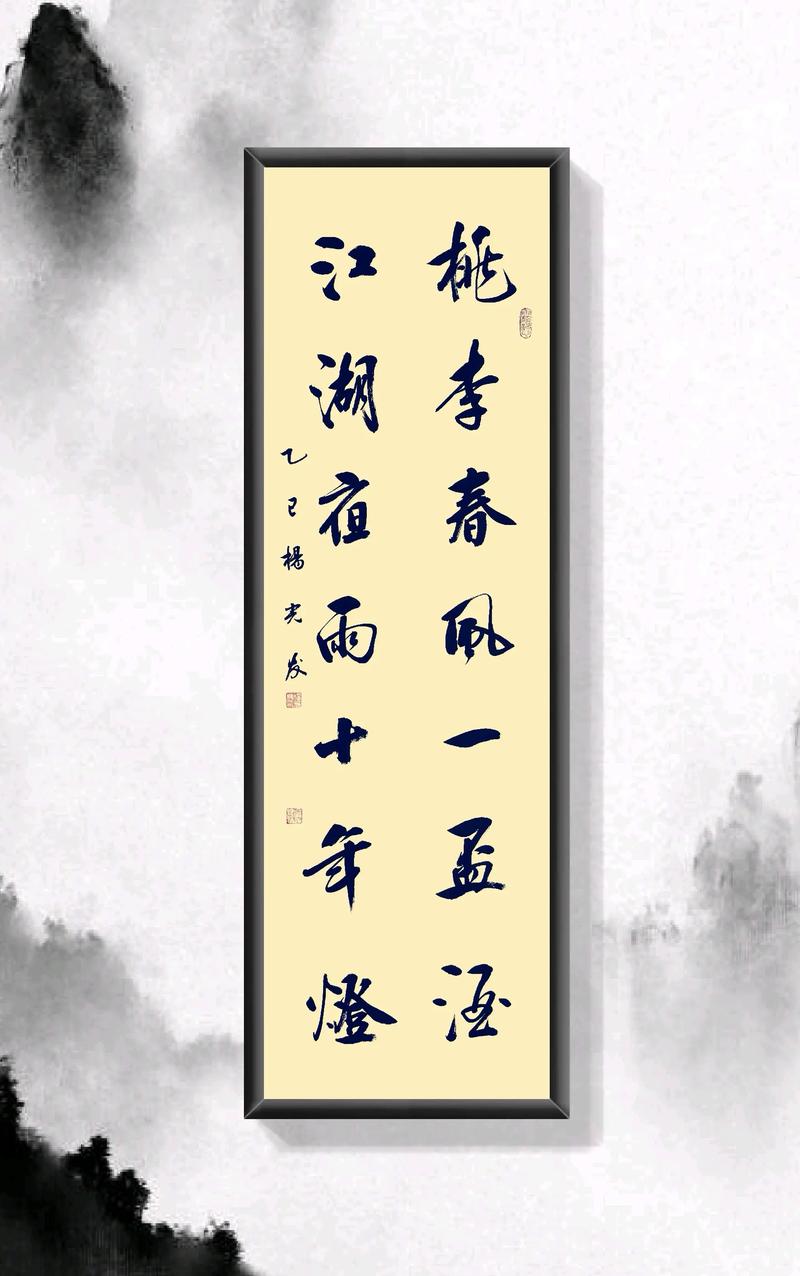 桃李春風一盃酒
江湖夜雨十年燈
乙巳楊光发